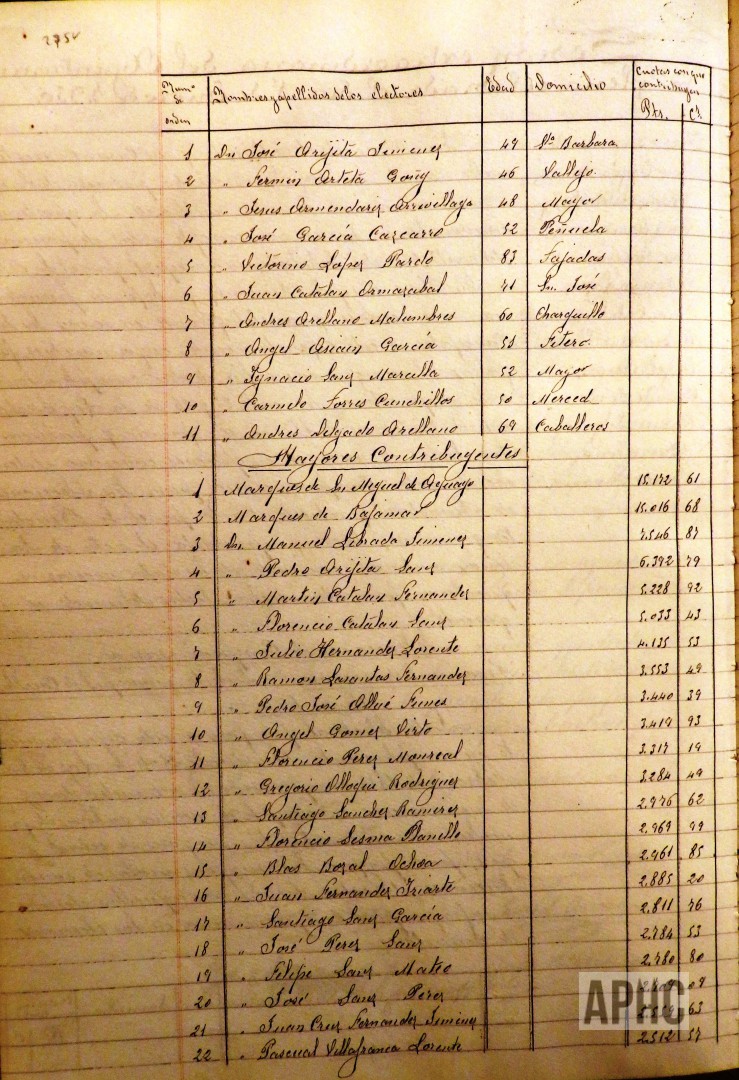 275v
Numº de orden Nombres y apellidos de los electores Edad Domicilio Cuotas con que contribuyen Pts. Cs.
1 Dn José Arijita Jimenez 49 Sta Barbara
2 " Fermin Arteta Goñy 46 Vallejo
3 " Jesus Armendariz Arrivillaga 48 Mayor
4 " José García Carcarro 52 Peñuela
5 " Victorino Lopez Pardo 83 Fajadas
6 " Juan Catalan Ormazabal 71 Sn. José
7 " Andres Arellano Malumbres 60 Charquillo
8 " Angel Asiain García 53 Fitero
9 " Ygnacio Sanz Marcilla 52 Mayor
10 " Carmelo Torres Cunchillos 50 Merced
11 " Andres Delgado Arellano 69 Caballeros
Mayores Contribuyentes
1 Marques de Sn Miguel de Aguayo 15.172 61
2 Marques de Bajamar 15.016 68
3 Dn. Manuel Librada Jimenez 7.546 87
4 " Pedro Arijita Sanz 6.392 79
5 " Martin Catalan Fernandez 5.228 92
6 " Florencio Catalan Sanz 5.033 43
7 " Julio Hernandez Lorente 4.135 53
8 " Ramon Lasantas Fernandez 3.553 49
9 " Pedro José Allué Funes 3.440 39
10 " Angel Gomez Virto 3.419 93
11 " Florencio Perez Monreal 3.317 19
12 " Gregorio Olloqui Rodriguez 3.284 49
13 " Santiago Sanchez Ramirez 2.976 62
14 " Florencio Sesma Planillo 2.969 99
15 " Blas Bozal Ochoa 2.961 85
16 " Juan Fernandez Iriarte 2.885 20
17 " Santiago Sanz García 2.811 76
18 " José Perez Sanz 2.784 53
19 " Felipe Sanz Mateo 2.780 80
20 " José Sanz Perez 09
21 " Juan Cruz Fernandez Jimenez 63
22 " Pascual Villafranca Lorente 2.512 57
APHC